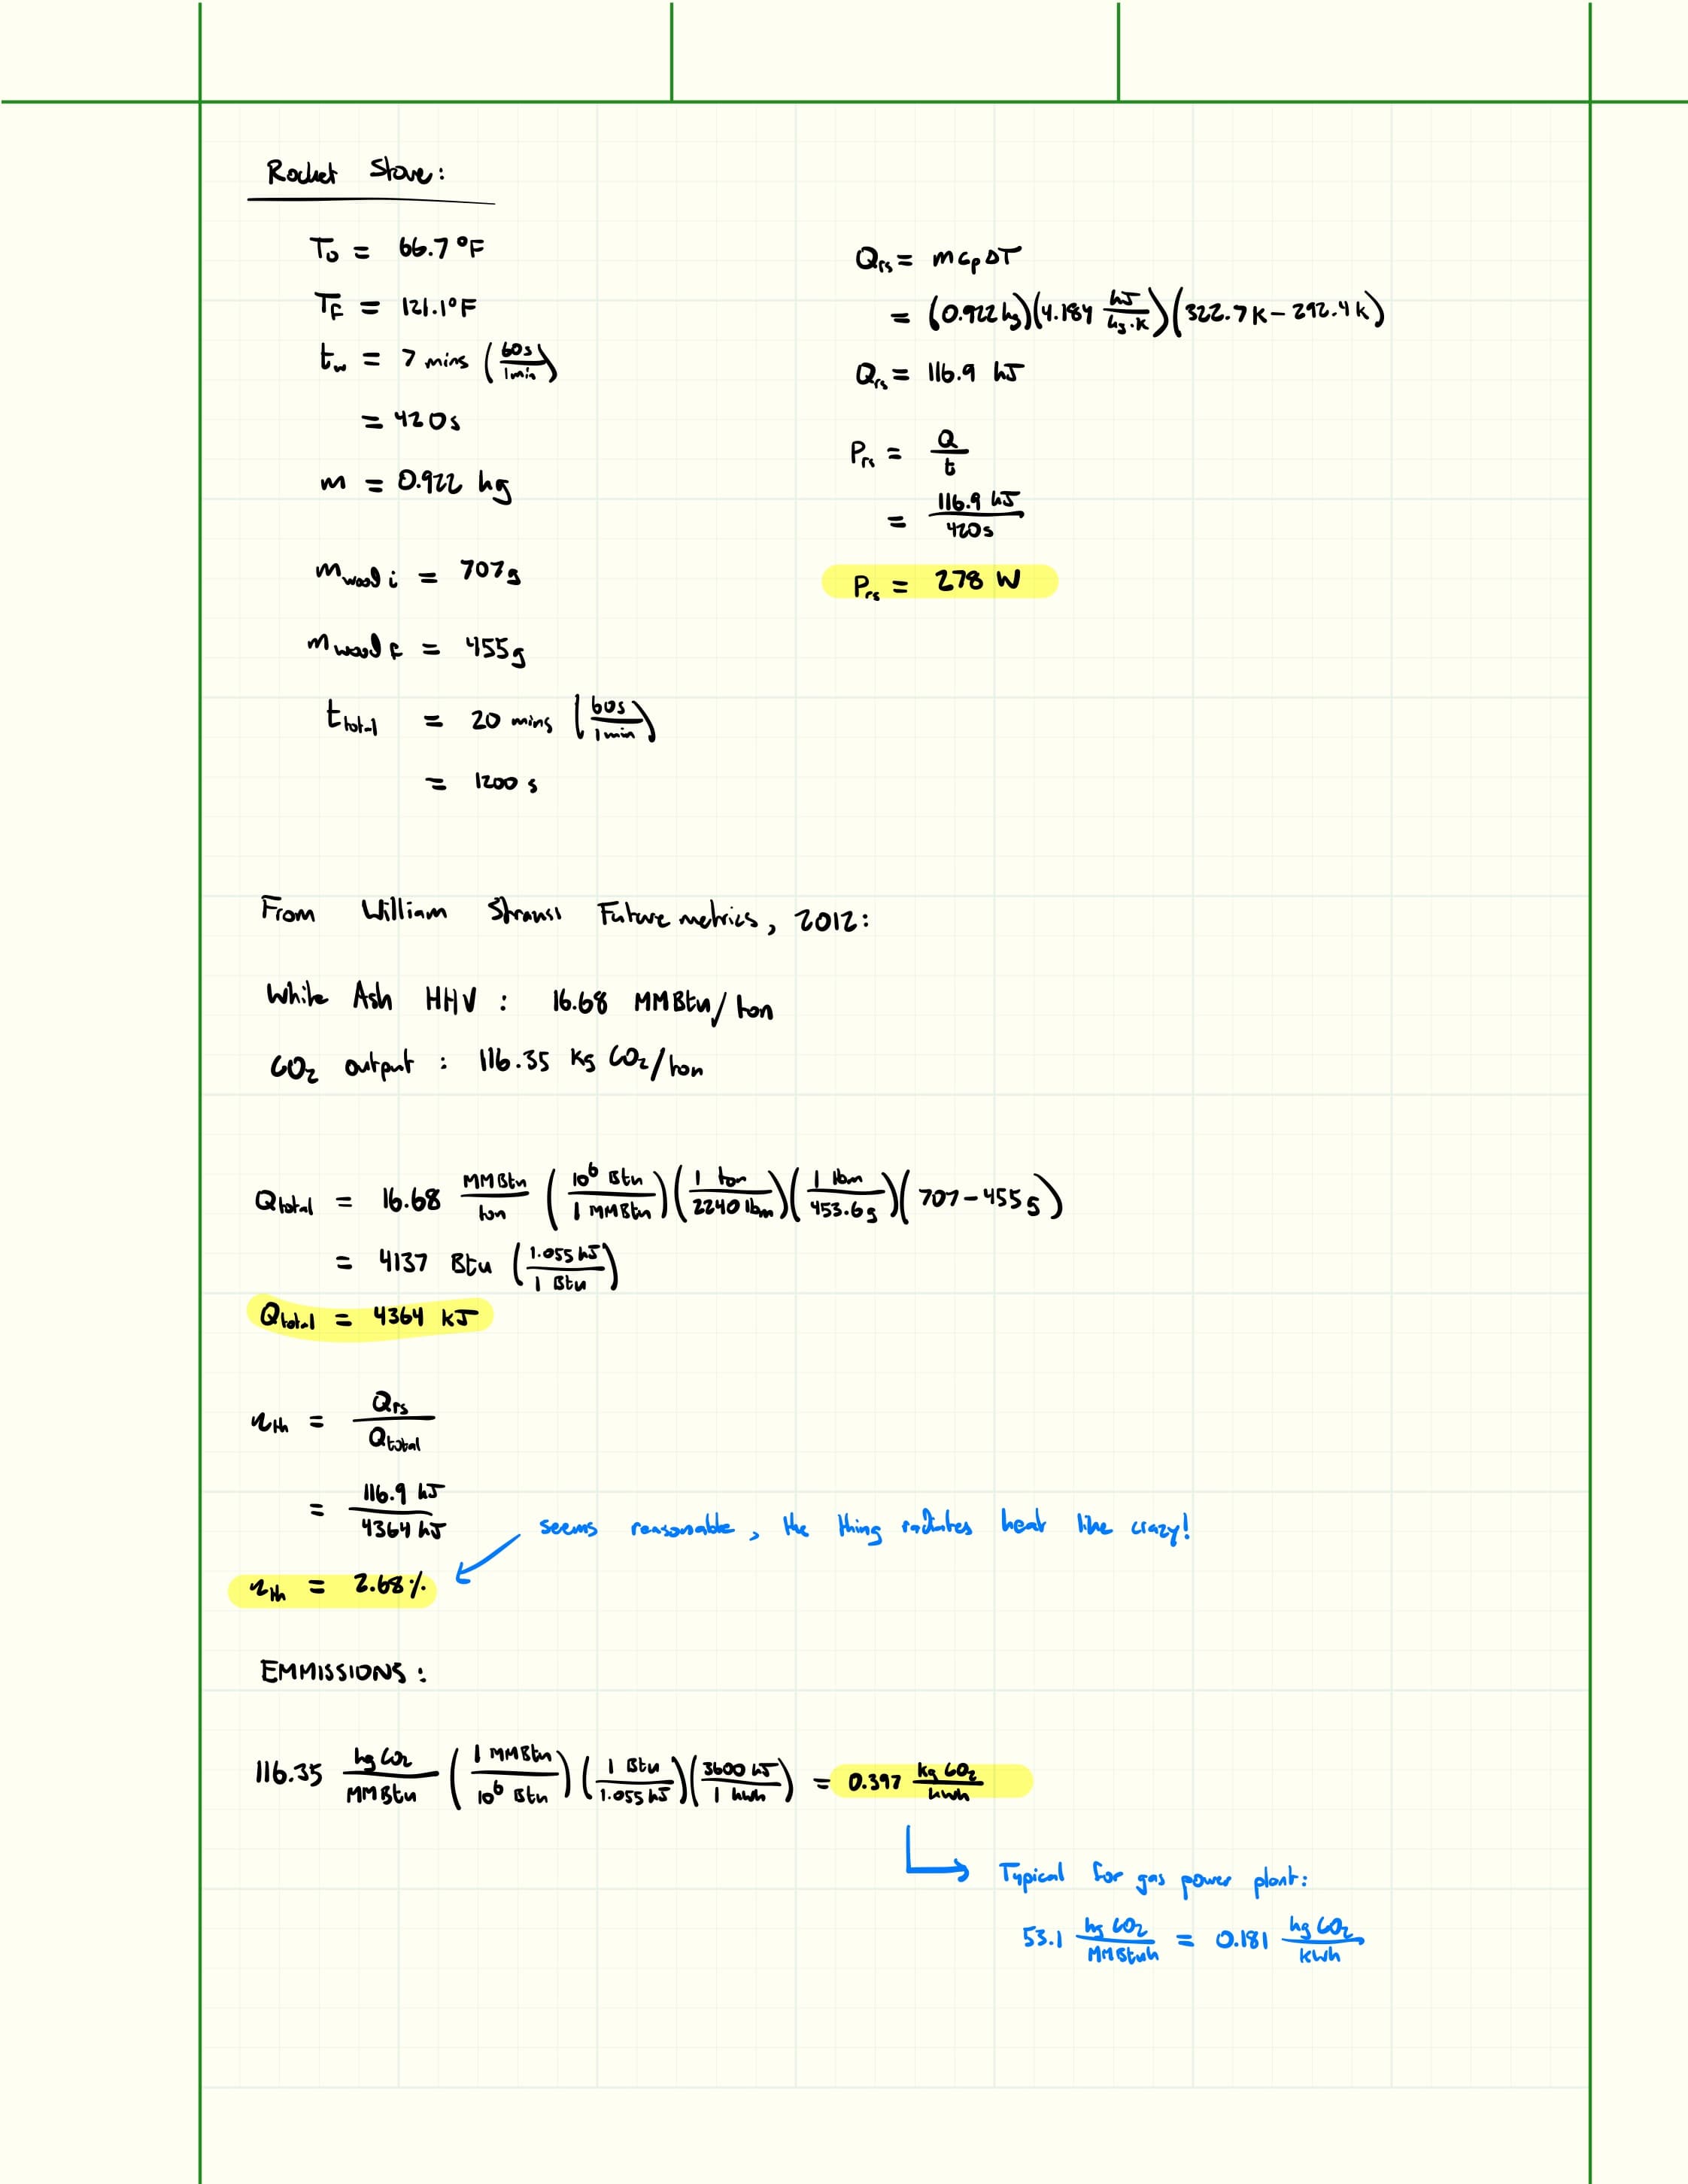 Rocket Stove:
T₀ = 66.7 °F
T_F = 121.1°F
t_w = 7 mins (60s / 1min)
= 420s
m = 0.922 kg
m_wood i = 707g
m_wood F = 455g
t_total = 20 mins (60s / 1min)
= 1200 s
Q_rs = m c_p ΔT
= (0.922 kg)(4.184 kJ / kg·K)(322.7 K - 292.4 K)
Q_rs = 116.9 kJ
P_rs = Q / t
= 116.9 kJ / 420s
P_rs = 278 W
From William Strauss Future metrics, 2012:
White Ash HHV : 16.68 MMBtu/ton
CO₂ output : 116.35 kg CO₂/ton
Q_total = 16.68 MMBtu / ton (10⁶ Btu / 1 MMBtu)(1 ton / 2240 lbm)(1 lbm / 453.6g)(707-455g)
= 4137 Btu (1.055 kJ / 1 Btu)
Q_total = 4364 kJ
η_th = Q_rs / Q_total
= 116.9 kJ / 4364 kJ
seems reasonable, the thing radiates heat like crazy!
η_th = 2.68%
EMMISSIONS:
116.35 kg CO₂ / MMBtu (1 MMBtu / 10⁶ Btu)(1 Btu / 1.055 kJ)(3600 kJ / 1 kWh) = 0.397 kg CO₂ / kWh
Typical for gas power plant:
53.1 kg CO₂ / MMBtuh = 0.181 kg CO₂ / kWh